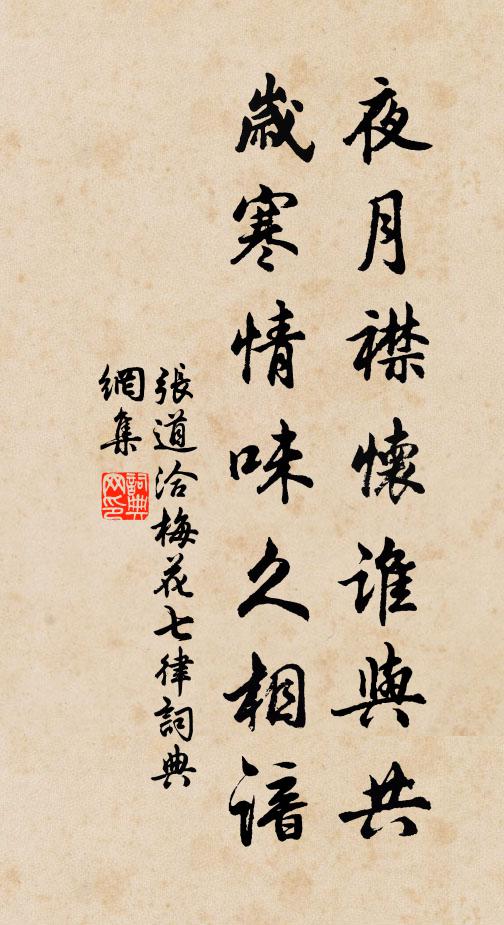 夜月襟懷誰與共
歲寒情味久相諳
張道洽梅花七律詞典
網集
詞典
网印